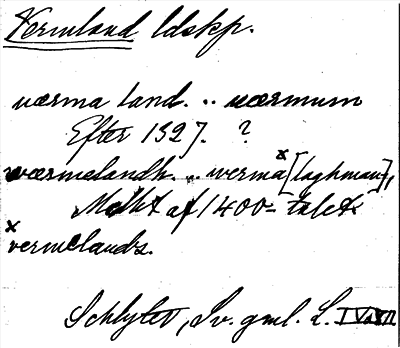 Vermland ldskp.
værma land. .. uærmum
Efter 1327. ?
wærmelandh. .. werma x [laghman],
Midt af 1400-talet
x vermelands.
Schlyter, Sv. gml. L.